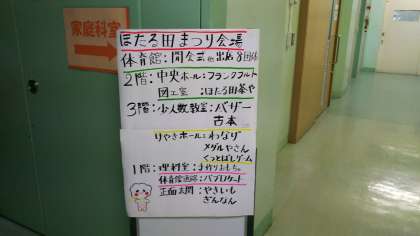 家庭科室
ほたる田まつり会場
体育館:開会式 他 出店8団体
2階:中央ホール:フランクフルト
図工室:ほたる田茶や
3階:少人数教室:バザー
古本
りやきホール:わなげ
メダルやさん
くつとばしゲーム
1階:理科室:手作りおもちゃ
体育館通路:パブロケート
正面玄関:やきいも
ぎんなん